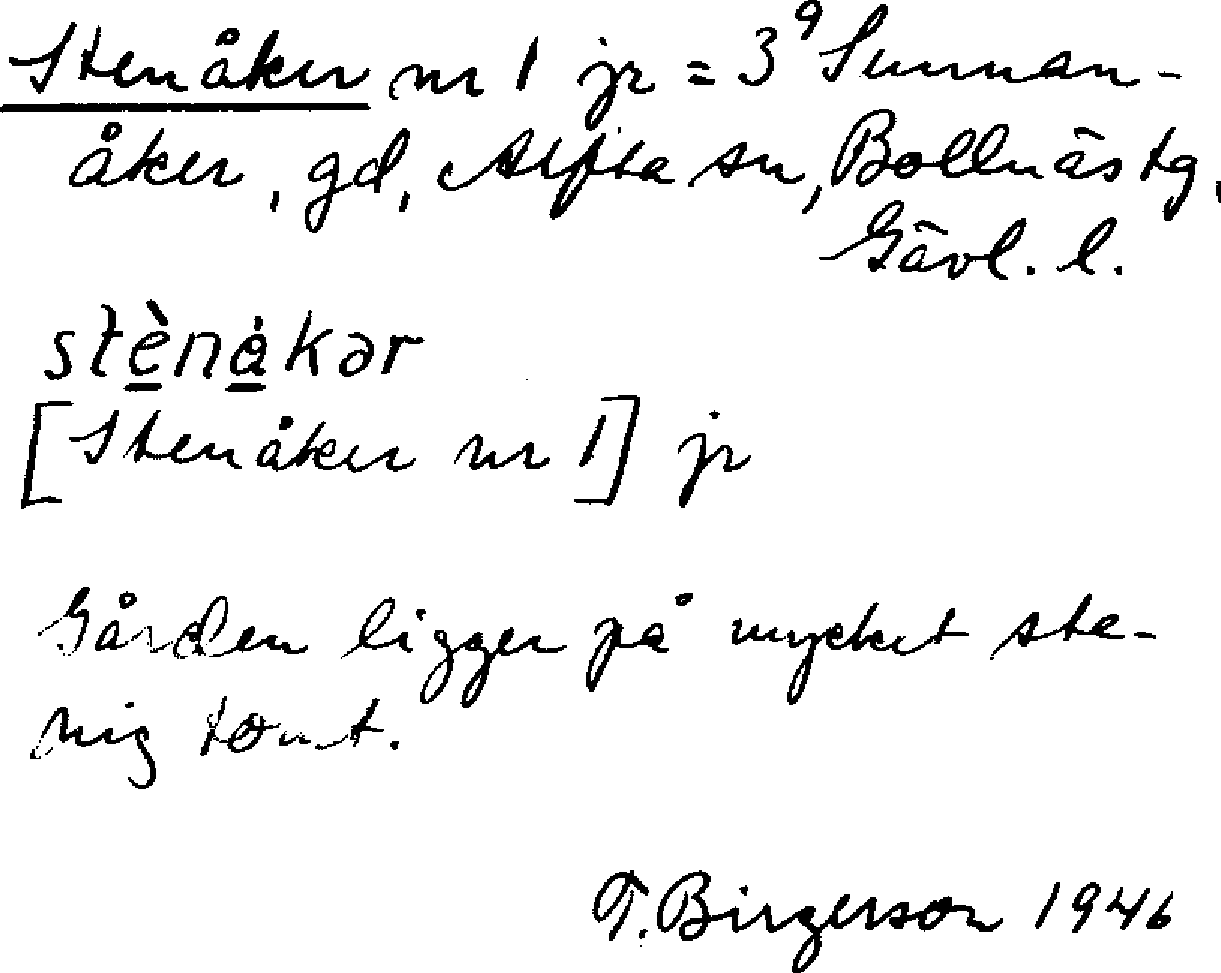 Stenåker nr 1 jr = 3⁹ Sunnan-
åker, gd, Alfta sn, Bollnäs tg,
Gävl. l.
stènȧkər
[Stenåker nr 1] jr
Gården ligger på mycket ste-
nig tomt.
T. Birgerson 1946